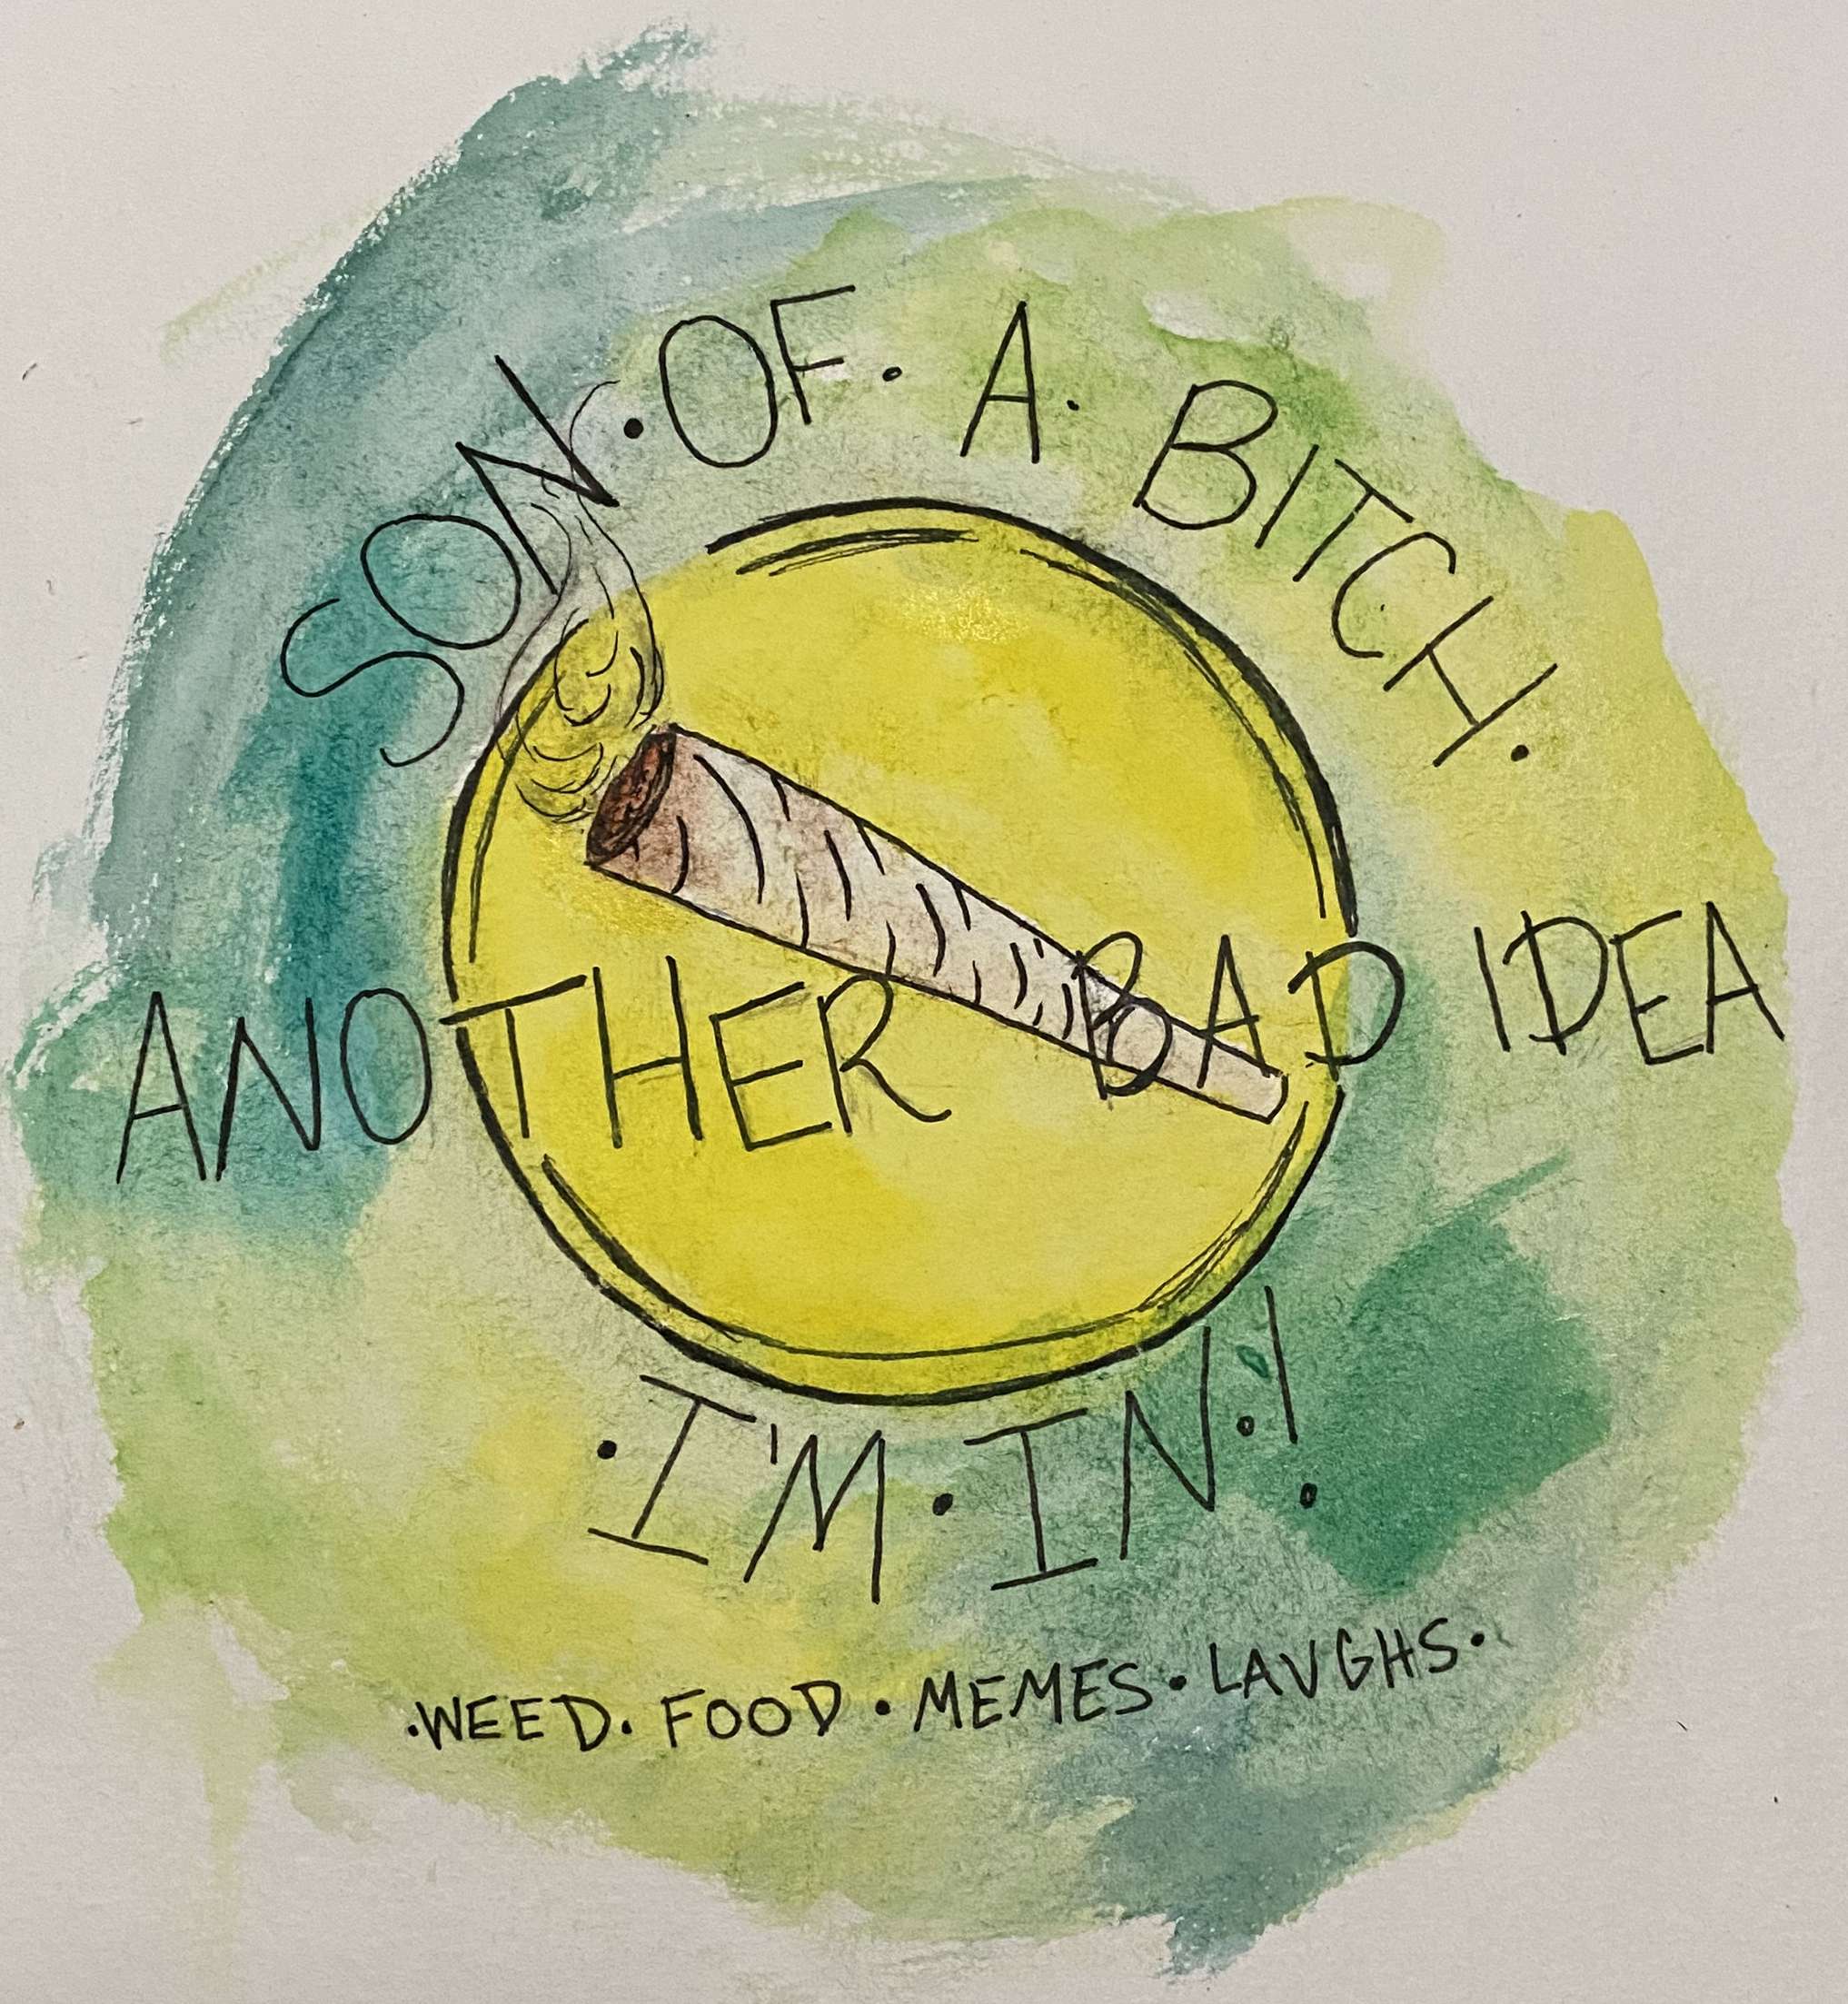 SON·OF· A· BITCH.
ANOTHER BAD IDEA
·I'M·IN·!
·WEED· FOOD·MEMES·LAUGHS·